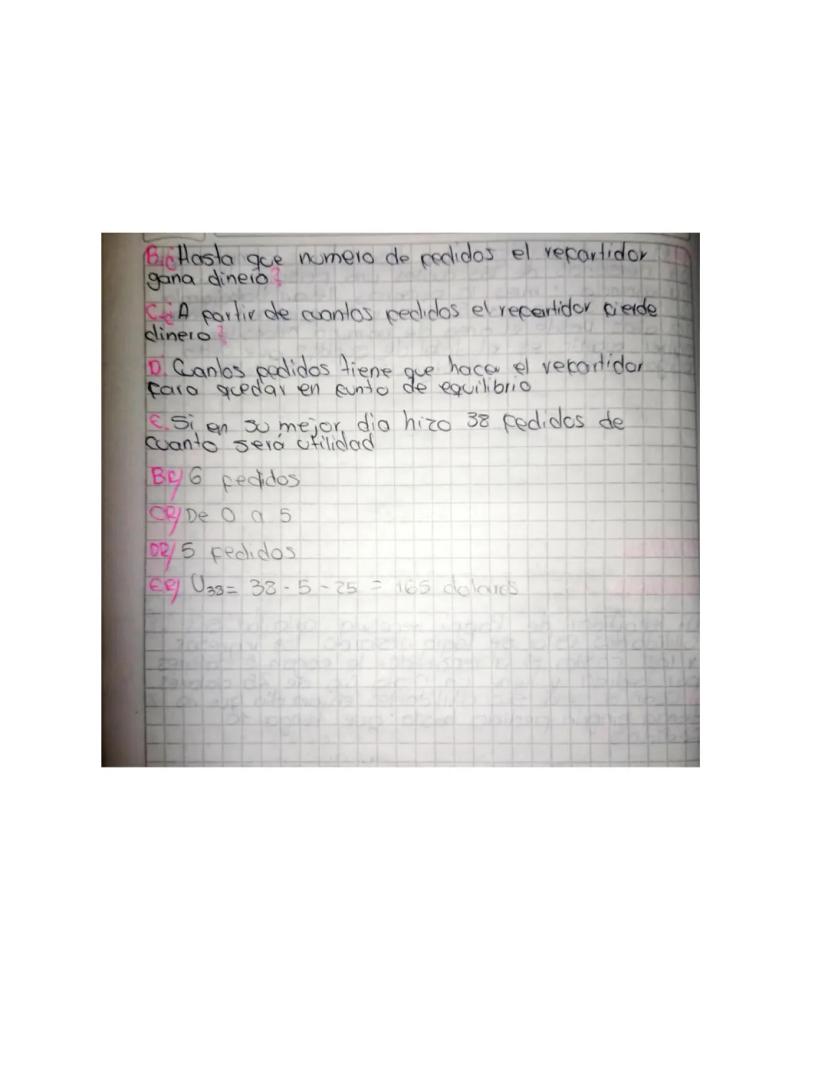 B.¿Hasta que numero de pedidos el repartidor
gana dinero?
C.¿A partir de cuantos pedidos el repartidor pierde
dinero?
D. Cuantos pedidos tiene que hacer el repartidor
para quedar en punto de equilibrio
E. Si en su mejor dia hizo 38 pedidos de
cuanto será utilidad
BR/ 6 pedidos
CR/ De 0 a 5
DR/ 5 pedidos
ER/ U33= 38 - 5 - 25 = 165 dolares